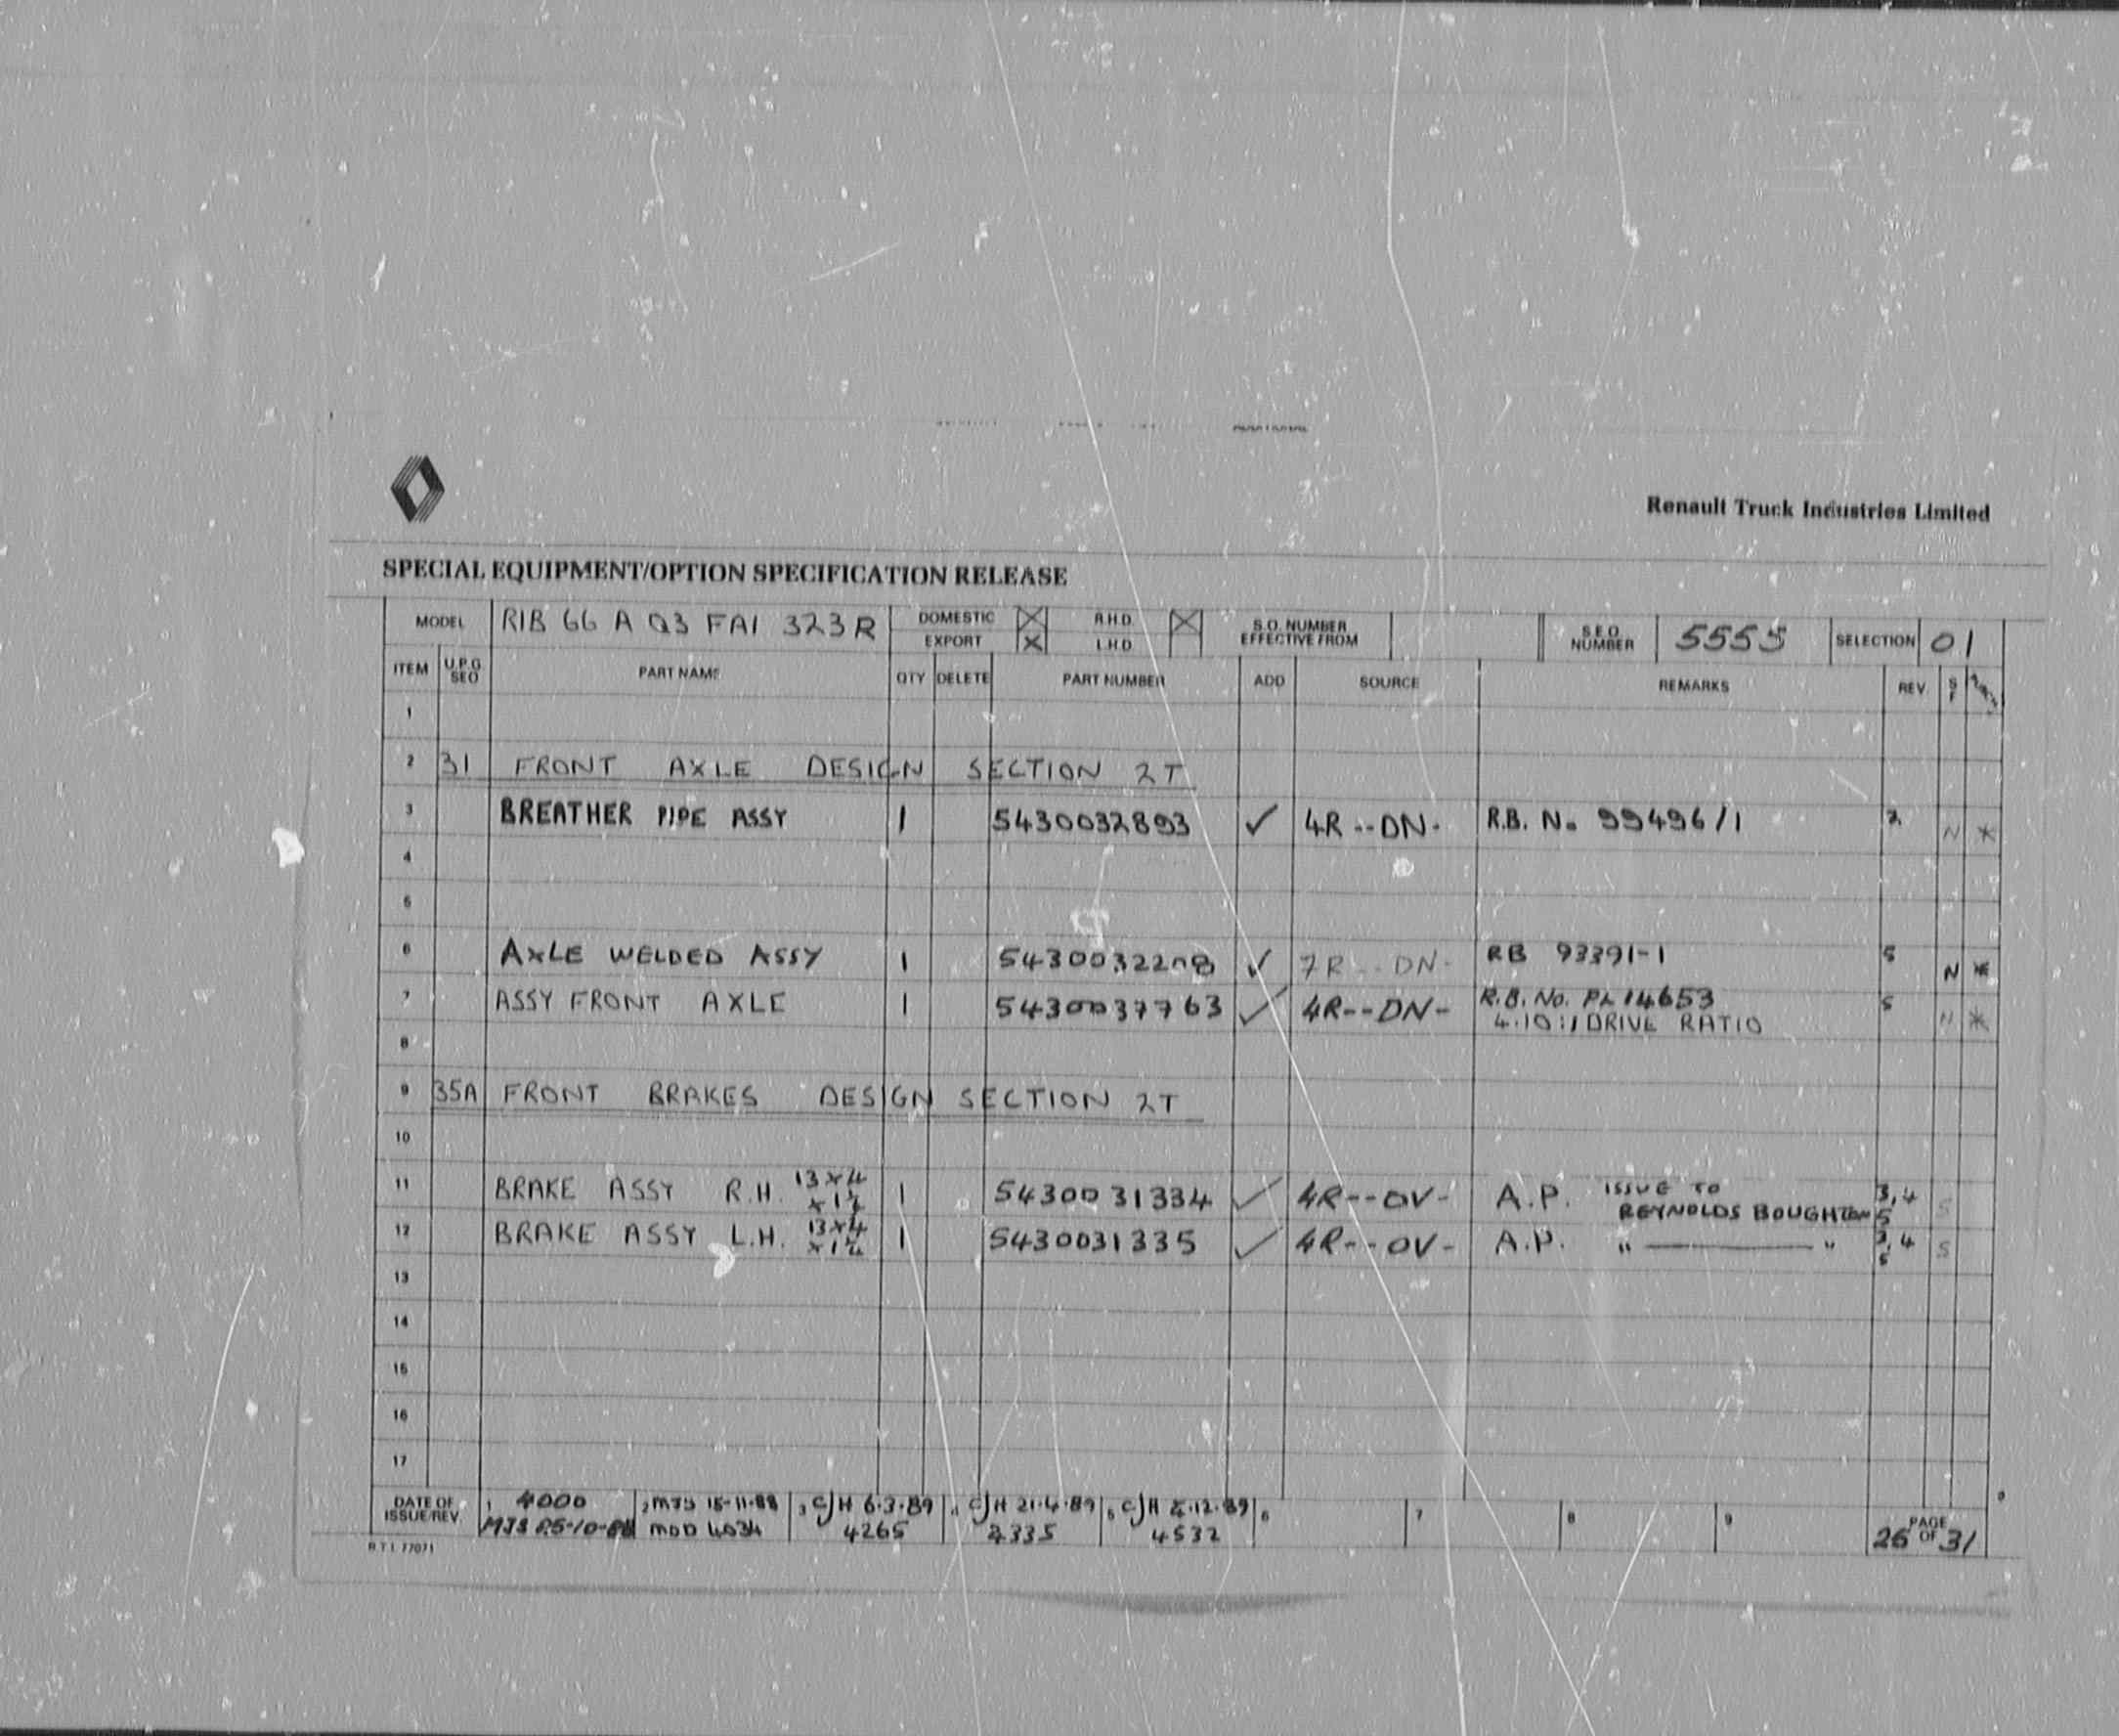 Renault Truck Industries Limited
SPECIAL EQUIPMENT/OPTION SPECIFICATION RELEASE
MODEL RIB 66 A Q3 FA1 323R DOMESTIC X R.H.D. X S.O. NUMBER EFFECTIVE FROM S.E.O. NUMBER 5555 SELECTION 01
EXPORT X L.H.D.
ITEM U.P.G SEQ PART NAME QTY DELETE PART NUMBER ADD SOURCE REMARKS REV S F
1
2 31 FRONT AXLE DESIGN SECTION 2T
3 BREATHER PIPE ASSY 1 5430032893 ✓ 4R--DN- R.B. No 99496/1 2 N *
4
5
6 AXLE WELDED ASSY 1 5430032208 ✓ 7R--DN- RB 93391-1 5 N *
7 ASSY FRONT AXLE 1 5430037763 ✓ 4R--DN- R.B. No. PL14653 5 N *
4.10:1 DRIVE RATIO
8
9 35A FRONT BRAKES DESIGN SECTION 2T
10
11 BRAKE ASSY R.H. 13x4 1 5430031334 ✓ 4R---OV- A.P. ISSUE TO 3,4 S
REYNOLDS BOUGHTON 5
12 BRAKE ASSY L.H. 13x4 1 5430031335 ✓ 4R---OV- A.P. " ——— " 3,4 S
5
13
14
15
16
17
DATE OF ISSUE/REV. 1 4000 2 MJS 15-11-88 3 CJH 6.3.89 4 CJH 21.4.89 5 CJH 12.89 6 7 8 9 PAGE
MJS MOD 4034 4265 4335 4532 26 OF 31
R.T.I. 77071